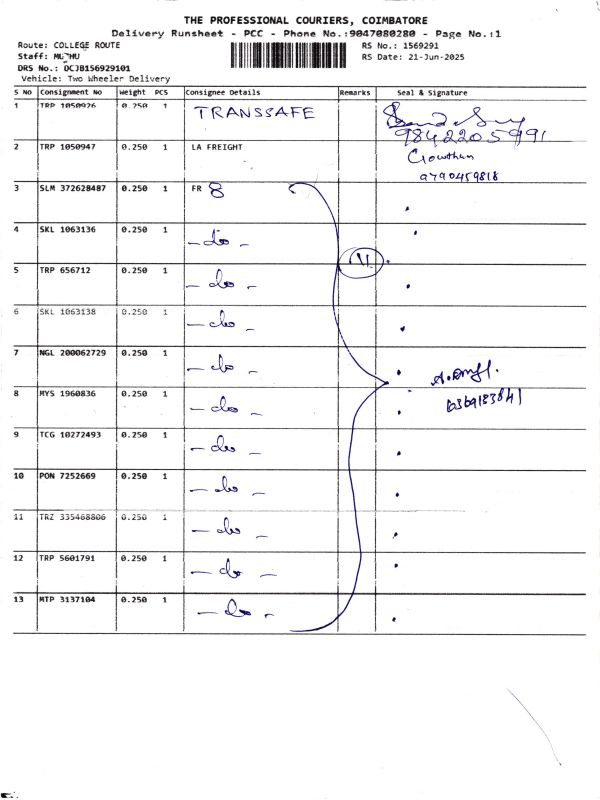 THE PROFESSIONAL COURIERS, COIMBATORE
Delivery Runsheet - PCC - Phone No.:9047080280 - Page No.:1
Route: COLLEGE ROUTE
RS No.: 1569291
Staff: MUTHU
RS Date: 21-Jun-2025
DRS No.: DCJB156929101
Vehicle: Two Wheeler Delivery
S NO Consignment No Weight PCS Consignee Details Remarks Seal & Signature
1 TRP 1050926 0.250 1 TRANSSAFE
9842205991
2 TRP 1050947 0.250 1 LA FREIGHT Gowtham
9790459818
3 SLM 372628487 0.250 1 FR 8
4 SKL 1063136 0.250 1 - do -
11
5 TRP 656712 0.250 1 - do -
6 SKL 1063138 0.250 1 - do -
7 NGL 200062729 0.250 1 - do -
8 MYS 1960836 0.250 1 - do -
9 TCG 10272493 0.250 1 - do -
10 PON 7252669 0.250 1 - do -
11 TRZ 335468806 0.250 1 - do -
12 TRP 5601791 0.250 1 - do -
13 MTP 3137104 0.250 1 - do -